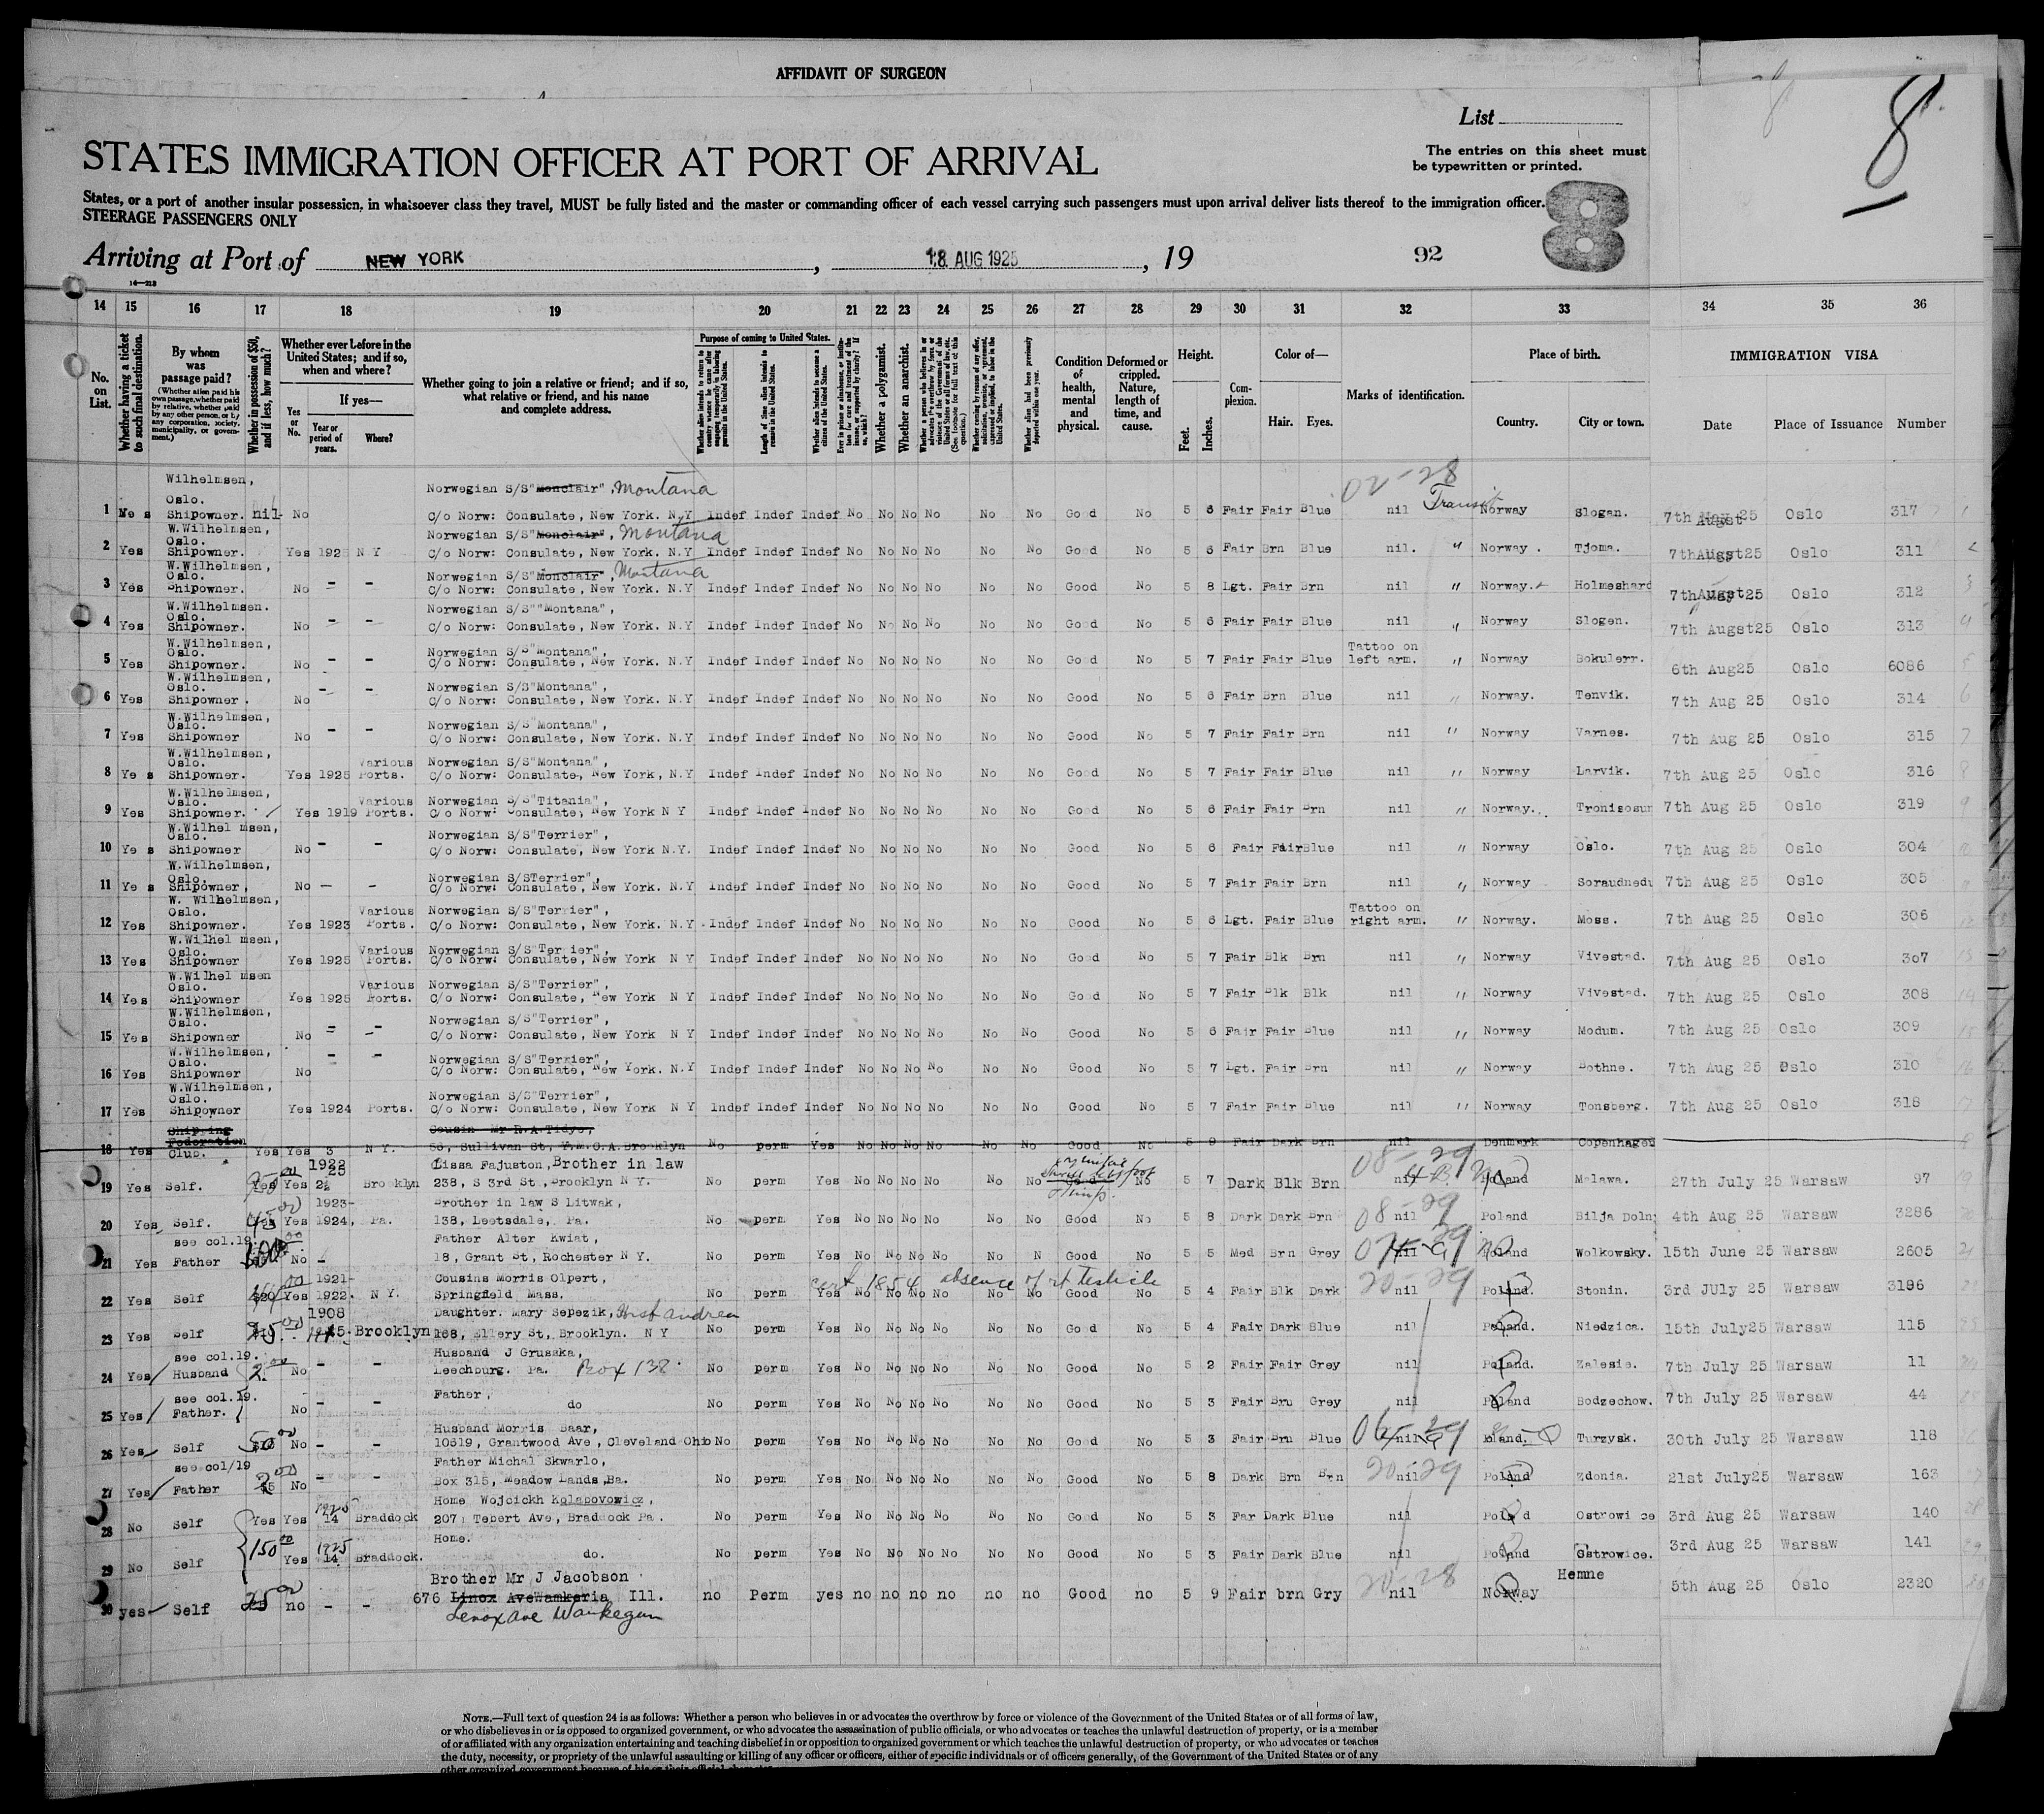 AFFIDAVIT OF SURGEON
8
List
STATES IMMIGRATION OFFICER AT PORT OF ARRIVAL
The entries on this sheet must
be typewritten or printed.
States, or a port of another insular possession, in whatsoever class they travel, MUST be fully listed and the master or commanding officer of each vessel carrying such passengers must upon arrival deliver lists thereof to the immigration officer.
STEERAGE PASSENGERS ONLY
8
Arriving at Port of NEW YORK, 18 AUG 1925, 19 92
14—213
14 15 16 17 18 19 20 21 22 23 24 25 26 27 28 29 30 31 32 33 34 35 36
No. on List.
Whether having a ticket to such final destination.
By whom was passage paid?
(Whether alien paid his own passage, whether paid by relative, whether paid by any other person, or by any corporation, society, municipality, or government.)
Whether in possession of $50, and if less, how much?
Whether ever before in the United States; and if so, when and where?
Yes or No.
If yes—
Year or period of years.
Where?
Whether going to join a relative or friend; and if so, what relative or friend, and his name and complete address.
Purpose of coming to United States.
Whether alien intends to return to country whence he came after engaging temporarily in laboring pursuits in the United States.
Length of time alien intends to remain in the United States.
Whether alien intends to become a citizen of the United States.
Whether a polygamist.
Whether an anarchist.
Whether alien had been previously deported within one year.
Condition of health, mental and physical.
Deformed or crippled. Nature, length of time, and cause.
Height.
Feet.
Inches.
Complexion.
Color of—
Hair. Eyes.
Marks of identification.
Place of birth.
Country. City or town.
IMMIGRATION VISA
Date Place of Issuance Number
02-28
Transit
Wilhelmsen, Oslo. Norwegian S/S"Monclair", Montana
1 Shipowner. nil No C/o Norw: Consulate, New York. N.Y Indef Indef Indef No No No No No No Good No 5 6 Fair Fair Blue nil Norway Slogan. 7th Augst 25 Oslo 317
W.Wilhelmsen, Oslo. Norwegian S/S"Monclair", Montana
2 Yes Shipowner. Yes 1925 N Y C/o Norw: Consulate, New York. N.Y Indef Indef Indef No No No No No No Good No 5 6 Fair Brn Blue nil. " Norway. Tjoma. 7th Augst25 Oslo 311
W.Wilhelmsen, Oslo. Norwegian S/S"Monclair", Montana
3 Yes Shipowner. No - - C/o Norw: Consulate, New York. N.Y Indef Indef Indef No No No No No No Good No 5 8 Lgt. Fair Brn nil " Norway. Holmeshard 7th Augst 25 Oslo 312
W.Wilhelmsen. Oslo. Norwegian S/S""Montana",
4 Yes Shipowner. No - - C/o Norw: Consulate, New York. N.Y Indef Indef Indef No No No No No No Good No 5 6 Fair Fair Blue nil " Norway Slogen. 7th Augst25 Oslo 313
W.Wilhelmsen, Oslo. Norwegian S/S"Montana",
5 Yes Shipowner. No - - C/o Norw: Consulate, New York. N.Y Indef Indef Indef No No No No No No Good No 5 7 Fair Fair Blue Tattoo on left arm. " Norway Bokulerr. 6th Aug25 Oslo 6086
W.Wilhelmsen, Oslo. Norwegian S/S"Montana",
6 Yes Shipowner. No - - C/o Norw: Consulate, New York. N.Y Indef Indef Indef No No No No No No Good No 5 6 Fair Brn Blue nil " Norway. Tenvik. 7th Aug 25 Oslo 314
W.Wilhelmsen, Oslo. Norwegian S/S"Montana",
7 Yes Shipowner No - - C/o Norw: Consulate, New York. N.Y Indef Indef Indef No No No No No No Good No 5 7 Fair Fair Brn nil " Norway Varnes. 7th Aug 25 Oslo 315
W.Wilhelmsen, Oslo. Various Norwegian S/S"Montana",
8 Ye s Shipowner. Yes 1925 Ports. C/o Norw: Consulate, New York, N.Y Indef Indef Indef No No No No No No Good No 5 7 Fair Fair Blue nil " Norway Larvik. 7th Aug 25 Oslo 316
W.Wilhelmsen, Oslo. Various Norwegian S/S"Titania",
9 Yes Shipowner. Yes 1919 Ports. C/o Norw: Consulate, New York N Y Indef Indef Indef No No No No No No Good No 5 6 Fair Fair Brn nil " Norway. Tronisosun 7th Aug 25 Oslo 319
W.Wilhel msen, Oslo. Norwegian S/S"Terrier",
10 Ye s Shipowner No - - C/o Norw: Consulate, New York N.Y. Indef Indef Indef No No No No No No Good No 5 6 Fair FairBlue nil " Norway Oslo. 7th Aug 25 Oslo 304
W.Wilhelmsen, Oslo. Norwegian S/STerrier",
11 Ye s Shipowner, No - - C/o Norw: Consulate, New York. N.Y Indef Indef Indef No No No No No No Good No 5 7 Fair Fair Brn nil " Norway Soraudnedu 7th Aug 25 Oslo 305
W. Wilhelmsen, Oslo. Various Norwegian S/S"Terrier", Tattoo on
12 Yes Shipowner. Yes 1923 Ports. C/o Norw: Consulate, New York. N.Y Indef Indef Indef No No No No No No Good No 5 6 Lgt. Fair Blue right arm. " Norway. Moss. 7th Aug 25 Oslo 306
W.Wilhel msen, Oslo. Various Norwegian S/S"Terrier",
13 Yes Shipowner Yes 1925 Ports. C/o Norw: Consulate, New York N Y Indef Indef Indef No No No No No No Good No 5 7 Fair Blk Brn nil " Norway Vivestad. 7th Aug 25 Oslo 307
W.Wilhel msen Oslo. Various Norwegian S/S"Terrier",
14 Yes Shipowner Yes 1925 Ports. C/o Norw: Consulate, New York N Y Indef Indef Indef No No No No No No Good No 5 7 Fair Blk Blk nil " Norway Vivestad. 7th Aug 25 Oslo 308
W.Wilhelmsen, Oslo. Norwegian S/S"Terrier",
15 Yes Shipowner No - - C/o Norw: Consulate, New York N Y Indef Indef Indef No No No No No No Good No 5 6 Fair Fair Blue nil " Norway Modum. 7th Aug 25 Oslo 309
W.Wilhelmsen, Oslo. Norwegian S/S"Terrier",
16 Yes Shipowner No - - C/o Norw: Consulate, New York. N.Y Indef Indef Indef No No No No No No Good No 5 7 Lgt. Fair Brn nil " Norway Bothne. 7th Aug 25 Oslo 310
W.Wilhelmsen, Oslo. Norwegian S/S"Terrier",
17 Yes Shipowner Yes 1924 Ports. C/o Norw: Consulate, New York N Y Indef Indef Indef No No No No No No Good No 5 7 Fair Fair Blue nil " Norway Tonsberg. 7th Aug 25 Oslo 318
Shipping Federation Cousin Mr R.A.Tidys,
18 Yes Club. Yes Yes 3 N Y. 56, Sullivan St, Y.M.C.A.Brooklyn No perm Yes No No No No No No Good No 5 9 Fair Dark Brn nil Denmark Copenhagen
1922 25 Lissa Fajuston, Brother in law 08-29
19 Yes Self. Yes Yes 2½ Brooklyn 238, S 3rd St., Brooklyn N Y. No perm Yes No No No No No No No 5 7 Dark Blk Brn nil Poland Malawa. 27th July 25 Warsaw 97
1923- Brother in law S Litwak,
20 Yes Self. Yes Yes 1924, Pa. 138, Leetsdale, Pa. No perm Yes No No No No No No Good No 5 8 Dark Dark Brn 08-29 nil Poland Bilja Doln 4th Aug 25 Warsaw 3286
see col.19. Father Alter Kwiat,
21 Yes Father No - 18, Grant St, Rochester N Y. No perm Yes No No No No No N Good No 5 5 Med Brn Grey nil Poland Wolkowsky. 15th June 25 Warsaw 2605
1921- Cousins Morris Olpert, cert 1854 absence of rt testicle 20-29
22 Yes Self $20 Yes 1922. N Y. Springfield Mass. No perm Yes No No No No No No Good No 5 4 Fair Blk Dark nil Poland. Stonin. 3rd JUly 25 Warsaw 3186
1908 Daughter. Mary Sepezik, Husb andrea
23 Yes Self 25.00 Brooklyn 168, Ellery St, Brooklyn. N Y No perm Yes No No No No No No Good No 5 4 Fair Dark Blue nil Poland. Niedzica. 15th July25 Warsaw 115
see col.19. Husband J Gruszka,
24 Yes Husband No - - Leechburg. Pa. Box 138. No perm Yes No No No No No No Good No 5 2 Fair Fair Grey nil Poland. Zalesie. 7th July 25 Warsaw 11
see col.19. Father,
25 Yes Father. No - - do No perm Yes No No No No No No Good No 5 3 Fair Bru Grey nil Poland Bodzechow. 7th July 25 Warsaw 44
Husband Morris Baar,
26 Yes Self 50.00 No - - 10619, Grantwood Ave, Cleveland Ohio No perm Yes No No No No No No Good No 5 3 Fair Brn Blue 06-29 nil Poland Turzysk. 30th July 25 Warsaw 118
see col/19 Father Michal Skwarlo,
27 Yes Father $5 No - - Box 315, Meadow Lands, Pa. No perm Yes No No No No No No Good No 5 8 Dark Brn Brn 20-29 nil Poland Zdonia. 21st July25 Warsaw 163
1925 Home Wojcickh Kolasovowicz,
28 No Self Yes Yes 14 Braddock 207, Tebert Ave, Braddock Pa. No perm Yes No No No No No No Good No 5 3 Far Dark Blue nil Poland Ostrowi ce 3rd Aug 25 Warsaw 140
1925 Home.
29 No Self 150.00 Yes 14 Braddock. do. No perm Yes No No No No No No Good No 5 3 Fair Dark Blue nil Poland Ostrowice. 3rd Aug 25 Warsaw 141
Brother Mr J Jacobson 20-28 Hemne
30 yes Self 25.00 no - - 676 Linox AveWamkeria Ill. no Perm yes no no no no no no Good no 5 9 Fair brn Gry nil Norway 5th Aug 25 Oslo 2320
Lenox ave Waukegan
NOTE.—Full text of question 24 is as follows: Whether a person who believes in or advocates the overthrow by force or violence of the Government of the United States or of all forms of law,
or who disbelieves in or is opposed to organized government, or who advocates the assassination of public officials, or who advocates or teaches the unlawful destruction of property, or is a member
of or affiliated with any organization entertaining and teaching disbelief in or opposition to organized government or which teaches the unlawful destruction of property, or who advocates or teaches
the duty, necessity, or propriety of the unlawful assaulting or killing of any officer or officers, either of specific individuals or of officers generally, of the Government of the United States or of any